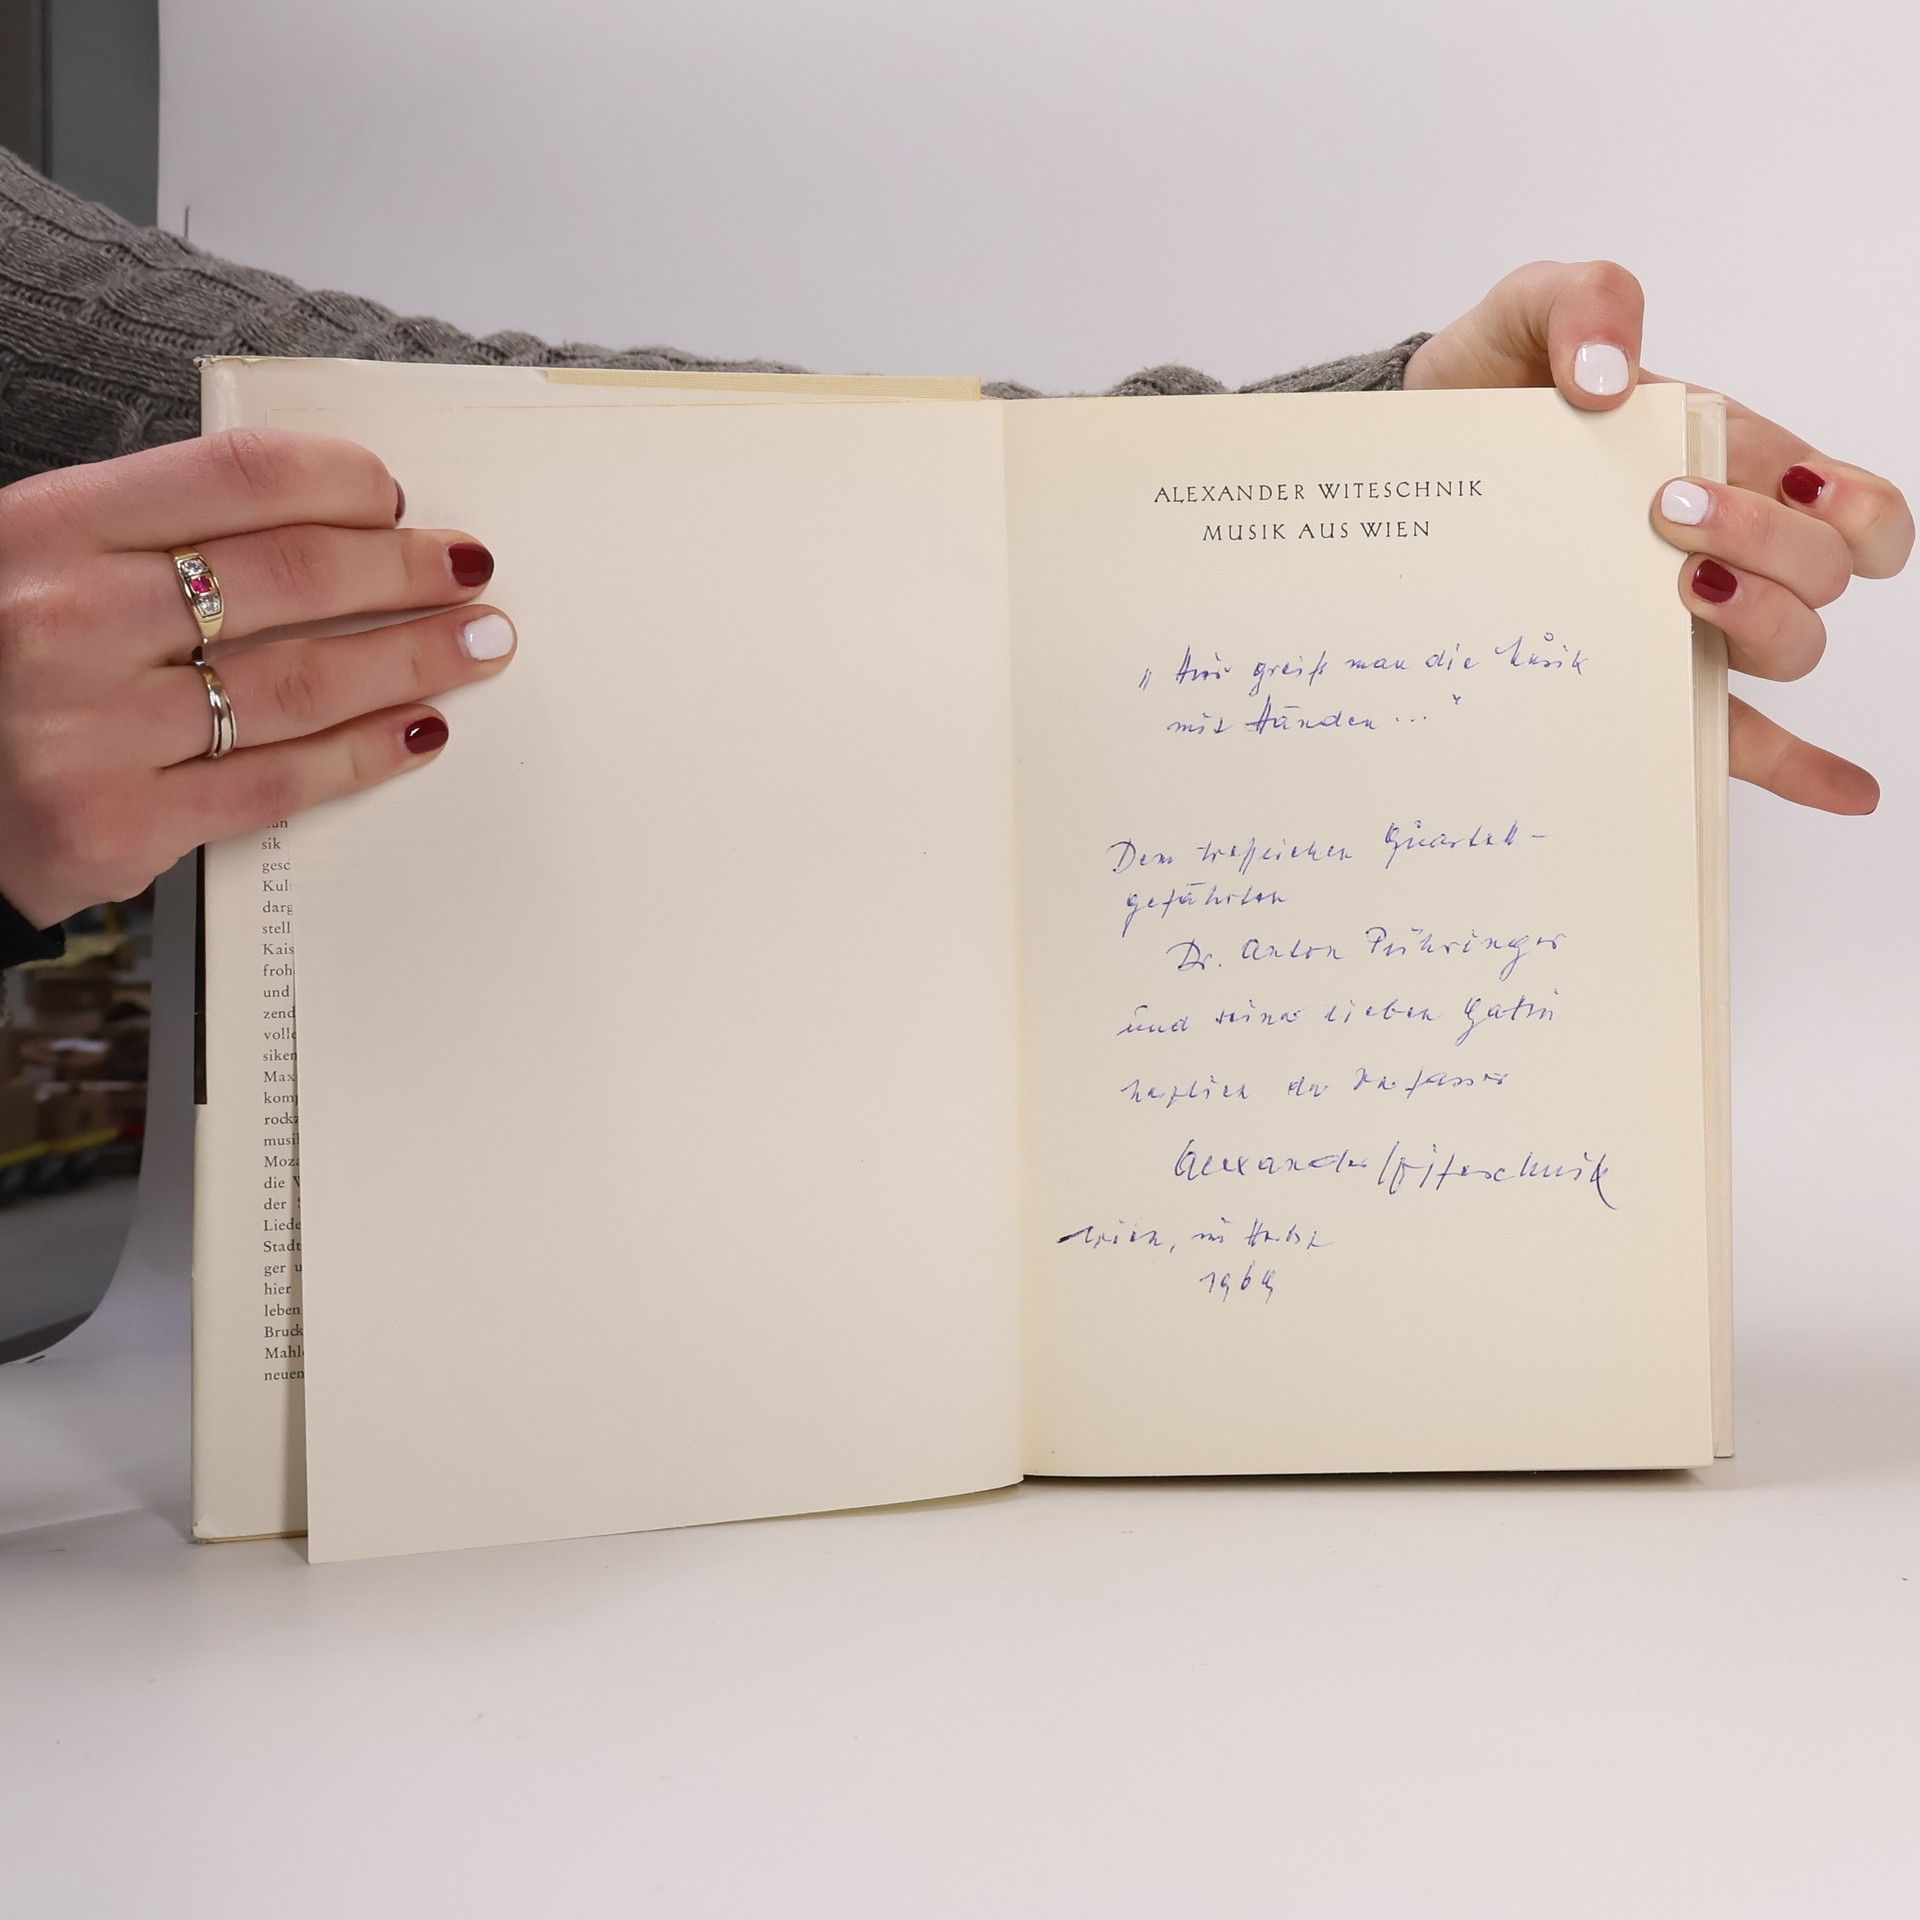 un
sik
gesc
Kul
darg
stell
Kais
froh
und
zend
volle
siken
Max
komp
rockz
musi
Moza
die V
der S
Liede
Stadt
ger u
hier
leben
Bruck
Mahl
neuen
ALEXANDER WITESCHNIK
MUSIK AUS WIEN
„Hier greift man die Musik
mit Händen ..."
Dem trefflichen Quartett-
gefährten
Dr. Anton Pühringer
und seiner lieben Gattin
herzlich der Verfasser
Alexander Witeschnik
Wien, im Herbst
1969